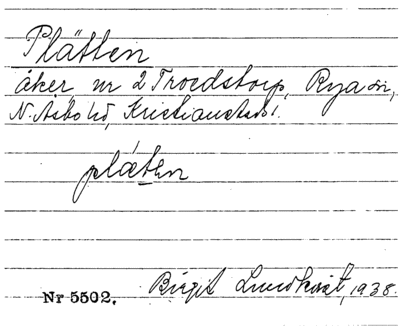 Plätten
åker nr 2 Troedstorp, Rya sn,
N. Åsbo hd, Kristianstads l.
plät̲en
Nr 5502. Birgit Lundkvist, 1938.